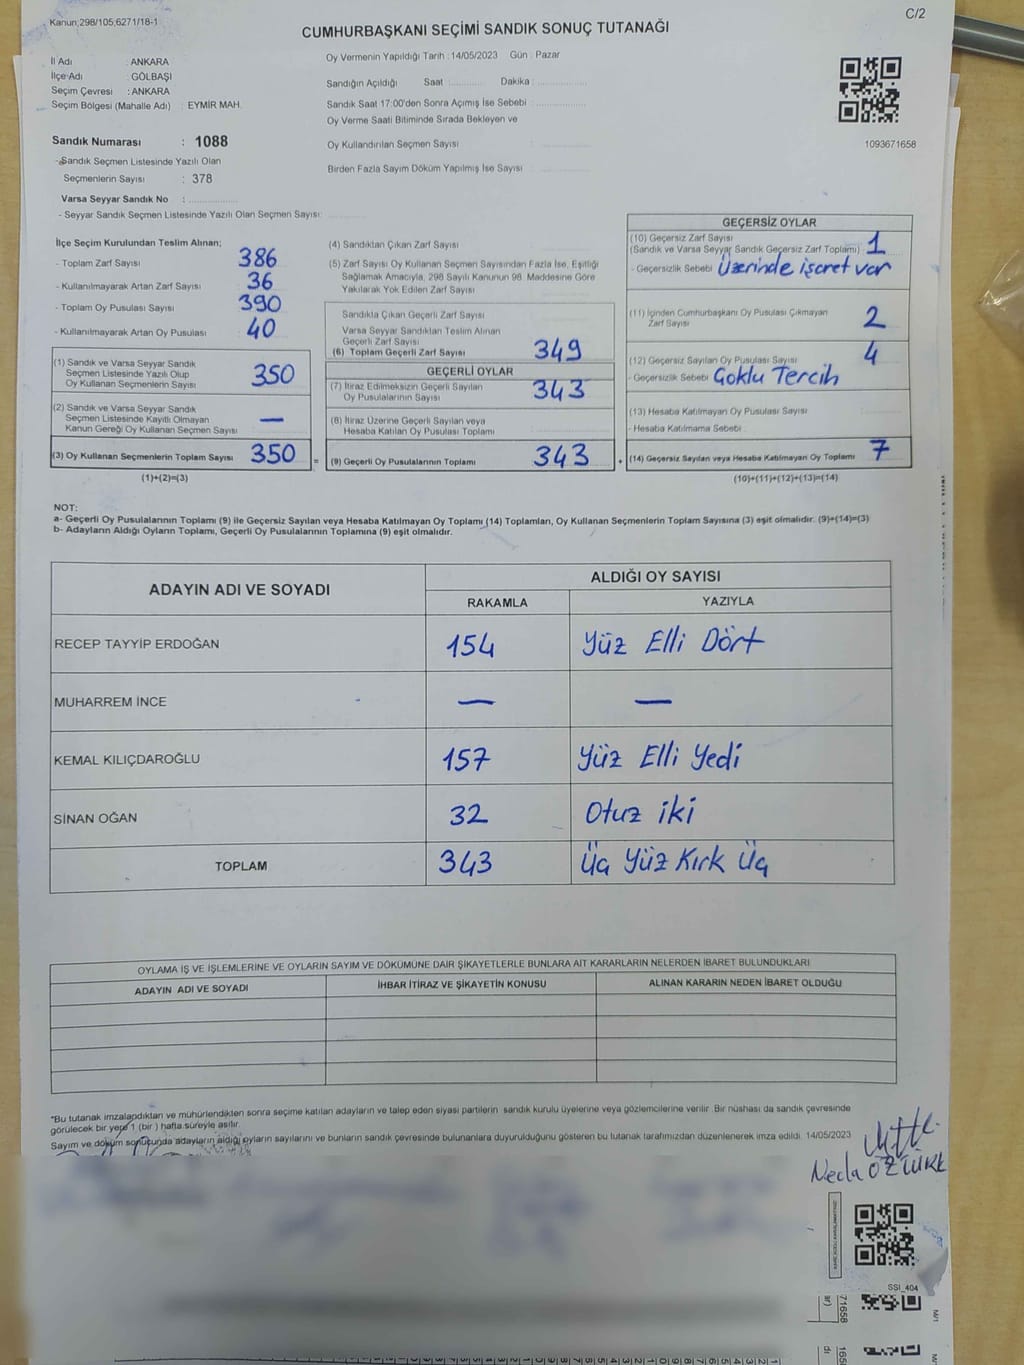 Kanun;298/105;6271/18-1
C/2
CUMHURBAŞKANI SEÇİMİ SANDIK SONUÇ TUTANAĞI
İl Adı : ANKARA
İlçe Adı : GÖLBAŞI
Seçim Çevresi : ANKARA
Seçim Bölgesi (Mahalle Adı) : EYMİR MAH.
Sandık Numarası : 1088
- Sandık Seçmen Listesinde Yazılı Olan
Seçmenlerin Sayısı : 378
Varsa Seyyar Sandık No : ..................
- Seyyar Sandık Seçmen Listesinde Yazılı Olan Seçmen Sayısı: ..............
Oy Vermenin Yapıldığı Tarih : 14/05/2023 Gün : Pazar
Sandığın Açıldığı Saat ............. Dakika : .....................
Sandık Saat 17:00'den Sonra Açımış İse Sebebi : .................
Oy Verme Saati Bitiminde Sırada Bekleyen ve
Oy Kullandırılan Seçmen Sayısı :
Birden Fazla Sayım Döküm Yapılmış İse Sayısı : ..................
1093671658
İlçe Seçim Kurulundan Teslim Alınan;
- Toplam Zarf Sayısı 386
- Kullanılmayarak Artan Zarf Sayısı : 36
- Toplam Oy Pusulası Sayısı : 390
- Kullanılmayarak Artan Oy Pusulası : 40
(1) Sandık ve Varsa Seyyar Sandık
Seçmen Listesinde Yazılı Olup
Oy Kullanan Seçmenlerin Sayısı 350
(2) Sandık ve Varsa Seyyar Sandık
Seçmen Listesinde Kayıtlı Olmayan
Kanun Gereği Oy Kullanan Seçmen Sayısı —
(3) Oy Kullanan Seçmenlerin Toplam Sayısı 350 =
(1)+(2)=(3)
(4) Sandıktan Çıkan Zarf Sayısı
(5) Zarf Sayısı Oy Kullanan Seçmen Sayısından Fazla İse, Eşitliği
Sağlamak Amacıyla, 298 Sayılı Kanunun 98. Maddesine Göre
Yakılarak Yok Edilen Zarf Sayısı
Sandıkta Çıkan Geçerli Zarf Sayısı
Varsa Seyyar Sandıktan Teslim Alınan
Geçerli Zarf Sayısı
(6) Toplam Geçerli Zarf Sayısı 349
GEÇERLİ OYLAR
(7) İtiraz Edilmeksizin Geçerli Sayılan
Oy Pusulalarının Sayısı 343
(8) İtiraz Üzerine Geçerli Sayılan veya
Hesaba Katılan Oy Pusulası Toplamı
(9) Geçerli Oy Pusulalarının Toplamı 343 +
GEÇERSİZ OYLAR
(10) Geçersiz Zarf Sayısı
(Sandık ve Varsa Seyyar Sandık Geçersiz Zarf Toplamı) 1
- Geçersizlik Sebebi Üzerinde işaret var
(11) İçinden Cumhurbaşkanı Oy Pusulası Çıkmayan
Zarf Sayısı 2
(12) Geçersiz Sayılan Oy Pusulası Sayısı 4
- Geçersizlik Sebebi Çoklu Tercih
(13) Hesaba Katılmayan Oy Pusulası Sayısı
- Hesaba Katılmama Sebebi
(14) Geçersiz Sayılan veya Hesaba Katılmayan Oy Toplamı 7
(10)+(11)+(12)+(13)=(14)
NOT:
a- Geçerli Oy Pusulalarının Toplamı (9) ile Geçersiz Sayılan veya Hesaba Katılmayan Oy Toplamı (14) Toplamları, Oy Kullanan Seçmenlerin Toplam Sayısına (3) eşit olmalıdır. (9)+(14)=(3)
b- Adayların Aldığı Oyların Toplamı, Geçerli Oy Pusulalarının Toplamına (9) eşit olmalıdır.
ADAYIN ADI VE SOYADI ALDIĞI OY SAYISI
RAKAMLA YAZIYLA
RECEP TAYYİP ERDOĞAN 154 Yüz Elli Dört
MUHARREM İNCE — —
KEMAL KILIÇDAROĞLU 157 Yüz Elli Yedi
SİNAN OĞAN 32 Otuz iki
TOPLAM 343 Üç Yüz Kırk Üç
OYLAMA İŞ VE İŞLEMLERİNE VE OYLARIN SAYIM VE DÖKÜMÜNE DAİR ŞİKAYETLERLE BUNLARA AİT KARARLARIN NELERDEN İBARET BULUNDUKLARI
ADAYIN ADI VE SOYADI İHBAR İTİRAZ VE ŞİKAYETİN KONUSU ALINAN KARARIN NEDEN İBARET OLDUĞU
*Bu tutanak imzalandıktan ve mühürlendikten sonra seçime katılan adayların ve talep eden siyasi partilerin sandık kurulu üyelerine veya gözlemcilerine verilir. Bir nüshası da sandık çevresinde
görülecek bir yere 1 (bir ) hafta süreyle asılır.
Sayım ve döküm sonucunda adayların aldığı oyların sayılarını ve bunların sandık çevresinde bulunanlara duyurulduğunu gösteren bu tutanak tarafımızdan düzenlenerek imza edildi. 14/05/2023
Necla ÖZTÜRK
SSİ_404
71658